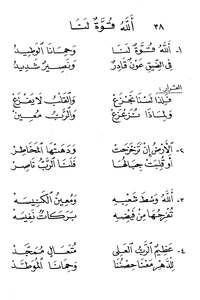 ٣٨ أَللهُ قُوَّةٌ لَنَا
١- أَللهُ قُوَّةٌ لَنَا وَحِمَانَا الْوَطِيدْ
فِي الضِّيقِ عَوْنٌ قَادِرٌ وَنَصِيرٌ شَدِيدْ
القرار:
فَلِذَا لَسْنَا نَجْزَعْ وَالْقَلْبُ لَا يَفْزَعْ
وَلِمَاذَا نُزَعْزَعْ وَالرَّبُّ مُعِينْ
٢- أَلْأَرْضُ إِنْ تَزَحْزَحَتْ وَدَهَتْهَا الْمَخَاطِرْ
أَوْ قُلِبَتْ جِبَالُهَا فَلَنَا الرَّبُّ نَاصِرْ
٣- أَللهُ وَسْطَ شَعْبِهِ وَمُعِينُ الْكَنِيسَهْ
تُفْرِحُهَا مِنْ فَيْضِهِ بَرَكَاتٌ نَفِيسَهْ
٤- عَظِيمٌ الرَّبُّ الْعَلِي مُتَعَالٍ مُمَجَّدْ
لِلدَّهْرِ مَعْنَا حِصْنُنَا وَحِمَانَا الْمُوَطَّدْ